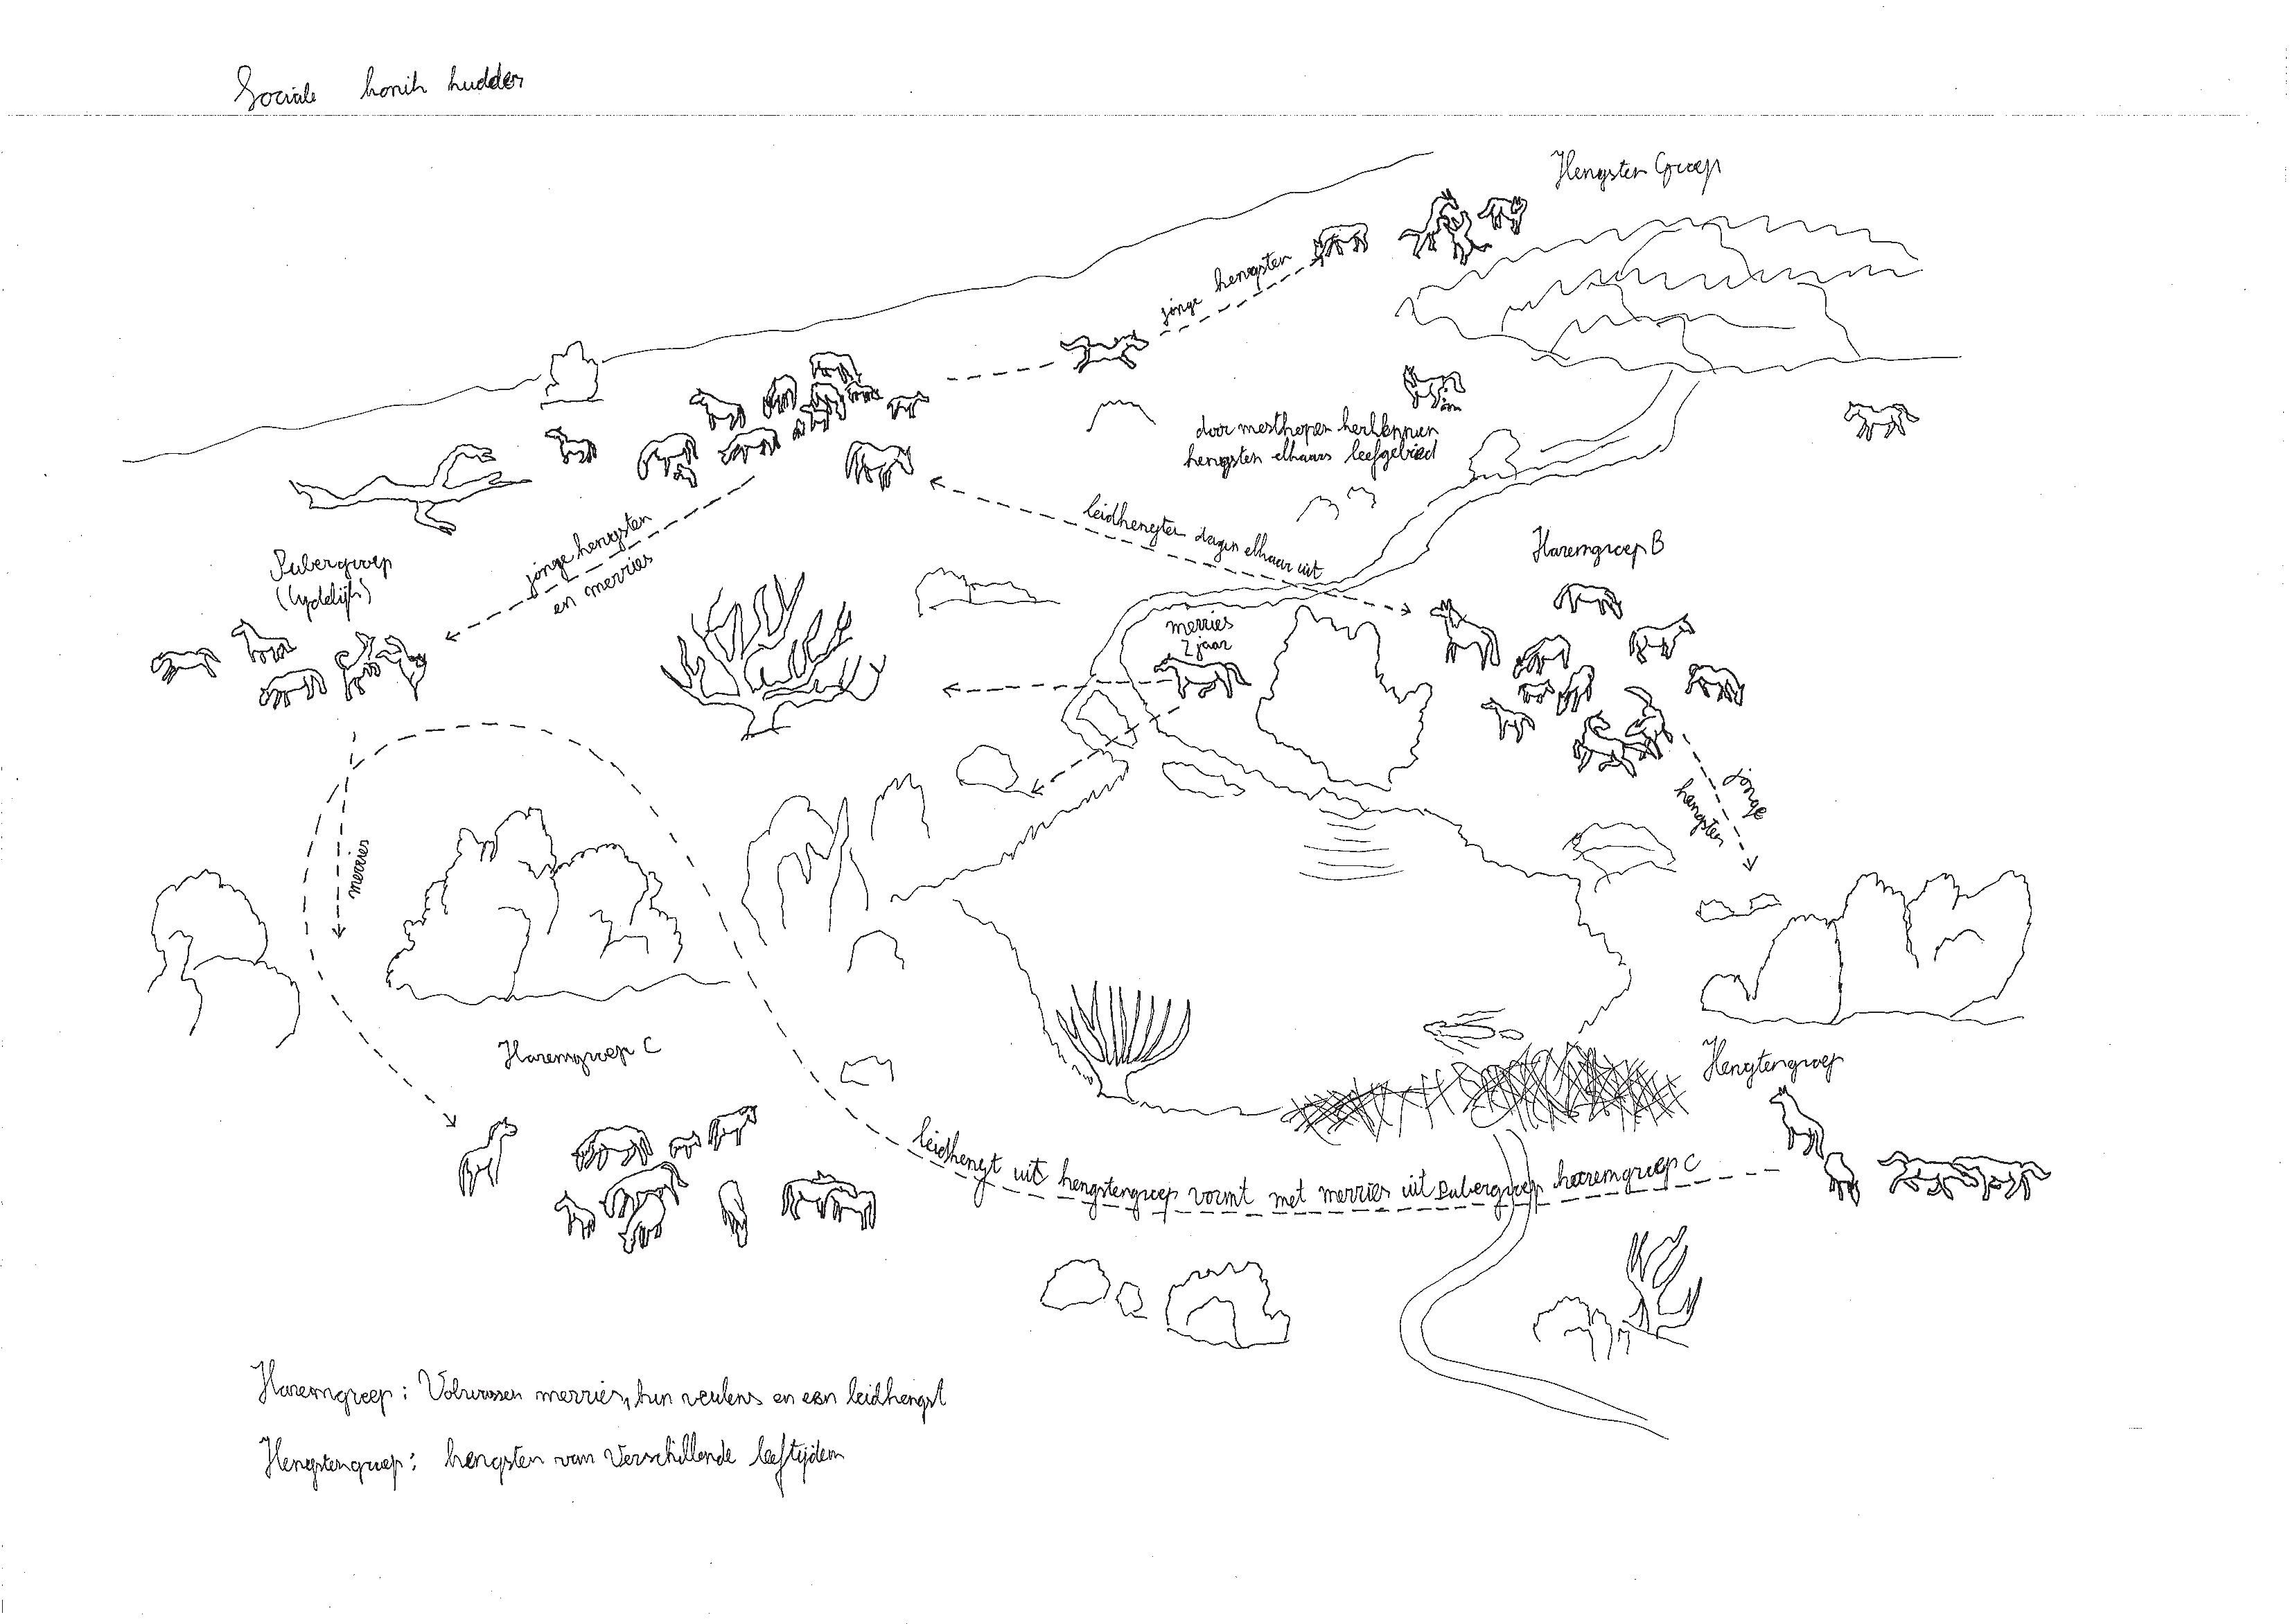 Sociale konik kudden
Hengsten Groep
jonge hengsten
door mesthopen herkennen
hengsten elkaars leefgebied
leidhengsten dagen elkaar uit
Haremgroep B
jonge hengsten
en merries
Pubergroep
(tydelijk)
merries
2 jaar
jonge
hengsten
merries
Haremgroep C
Hengtengroep
leidhengt uit hengstengroep vormt met merries uit Pubergroep haremgroep C
Haremgroep: Volwassen merries, hun veulens en een leidhengst
Hengstengroep: hengsten van Verschillende leeftijden